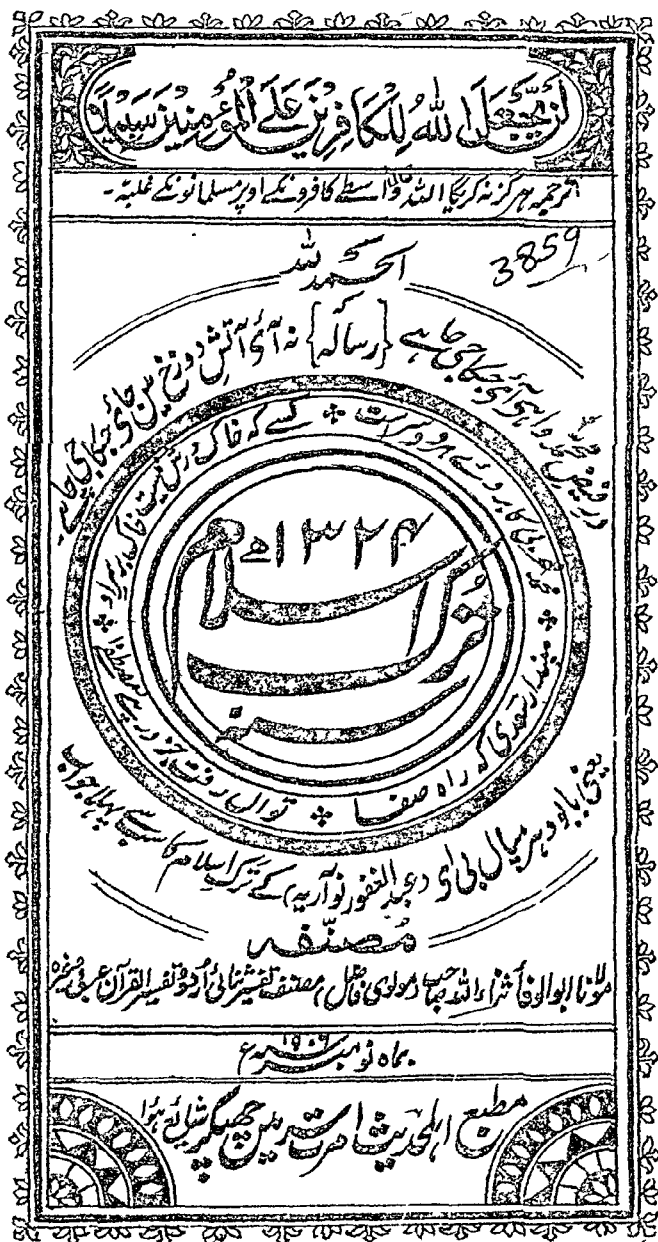 لَنْ يَّجْعَلَ اللهُ لِلْكَافِرِيْنَ عَلَى الْمُؤْمِنِيْنَ سَبِيْلًا
ترجمہ ہرگز نہ کریگا اللہ تعالیٰ واسطے کافرونکے اوپر مسلمانونکے غلبہ۔
3859
الحمد للہ
در فیض محمد وا ہے آئے جسکا جی چاہے {رسالہ} نہ آئے آتش دوزخ میں جائے جسکا جی چاہے۔
محمد عربی کابروئے ہر دو سراست ❖ کسے کہ خاک درش نیست خاک بر سر او ❖
مپندار سعدی کہ راہ صفا ❖ تواں رفت جز در پے مصطفا
۱۳۲۴ھ
ترک اسلام
یعنی بابو دھرمپال بی اے (عبد الغفور نو آریہ) کے ترک اسلام کا سب سے پہلا جواب
مصنّفہ
مولانا ابوالوفا ثناء اللہ صاحب (مولوی فاضل) مصنف تفسیر ثنائی اردو و تفسیر القرآن عربی وغیرہ
بماہ نومبر ع
مطبع اہلحدیث امرتسر میں چھپکر شائع ہوا